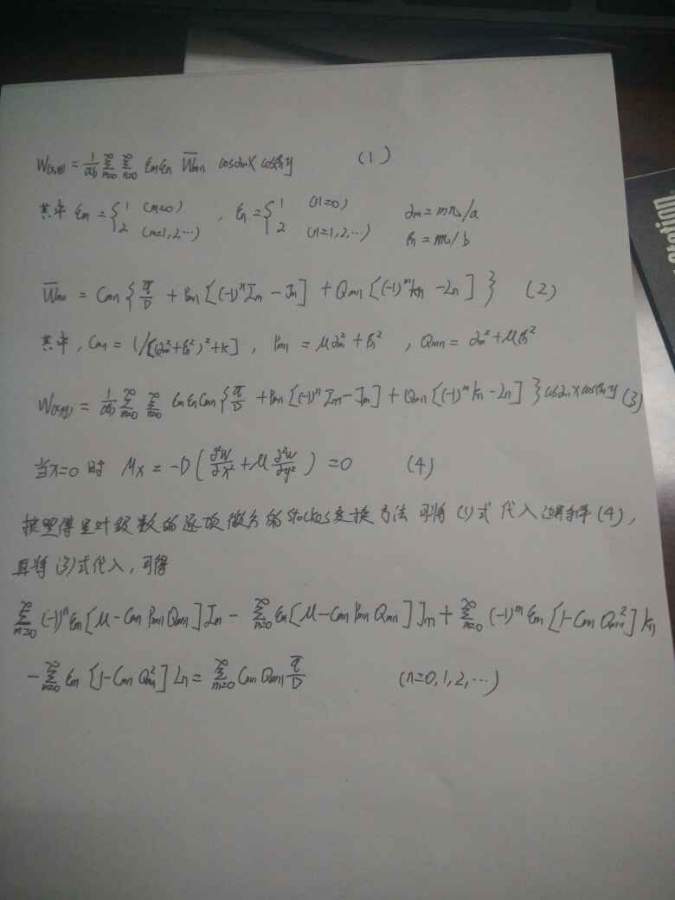 W(x,y) = 1/ab ∑_{m=0}^{∞} ∑_{n=0}^{∞} ε_m ε_n W̄_mn cosα_m x cosβ_n y (1)
其中 ε_m = { 1 (m=0) 2 (m=1,2,…) , ε_n = { 1 (n=0) 2 (n=1,2,…) α_m = mπ/a β_n = nπ/b
W̄_mn = C_mn { q̄/D + P_mn [(-1)^n I_m - J_m] + Q_mn [(-1)^m K_n - L_n] } (2)
其中, C_mn = 1/[(α_m²+β_n²)²+k], P_mn = μα_m²+β_n², Q_mn = α_m²+μβ_n²
W(x,y) = 1/ab ∑_{m=0}^{∞} ∑_{n=0}^{∞} ε_m ε_n C_mn { q̄/D + P_mn [(-1)^n I_m - J_m] + Q_mn [(-1)^m K_n - L_n] } cosα_m x cosβ_n y (3)
当x=0时 M_x = -D(∂²W/∂x² + μ ∂²W/∂y²) = 0 (4)
按照傅里叶级数的逐项微分的Stockes变换方法 可将(1)式代入边界条件(4),
且将(3)式代入,可得
∑_{m=0}^{∞} (-1)^n ε_m [μ - C_mn P_mn Q_mn] I_m - ∑_{m=0}^{∞} ε_m [μ - C_mn P_mn Q_mn] J_m + ∑_{m=0}^{∞} (-1)^m ε_m [1 - C_mn Q_mn²] K_n
- ∑_{m=0}^{∞} ε_m [1 - C_mn Q_mn²] L_n = ∑_{m=0}^{∞} C_mn Q_mn q̄/D (n=0,1,2,…)